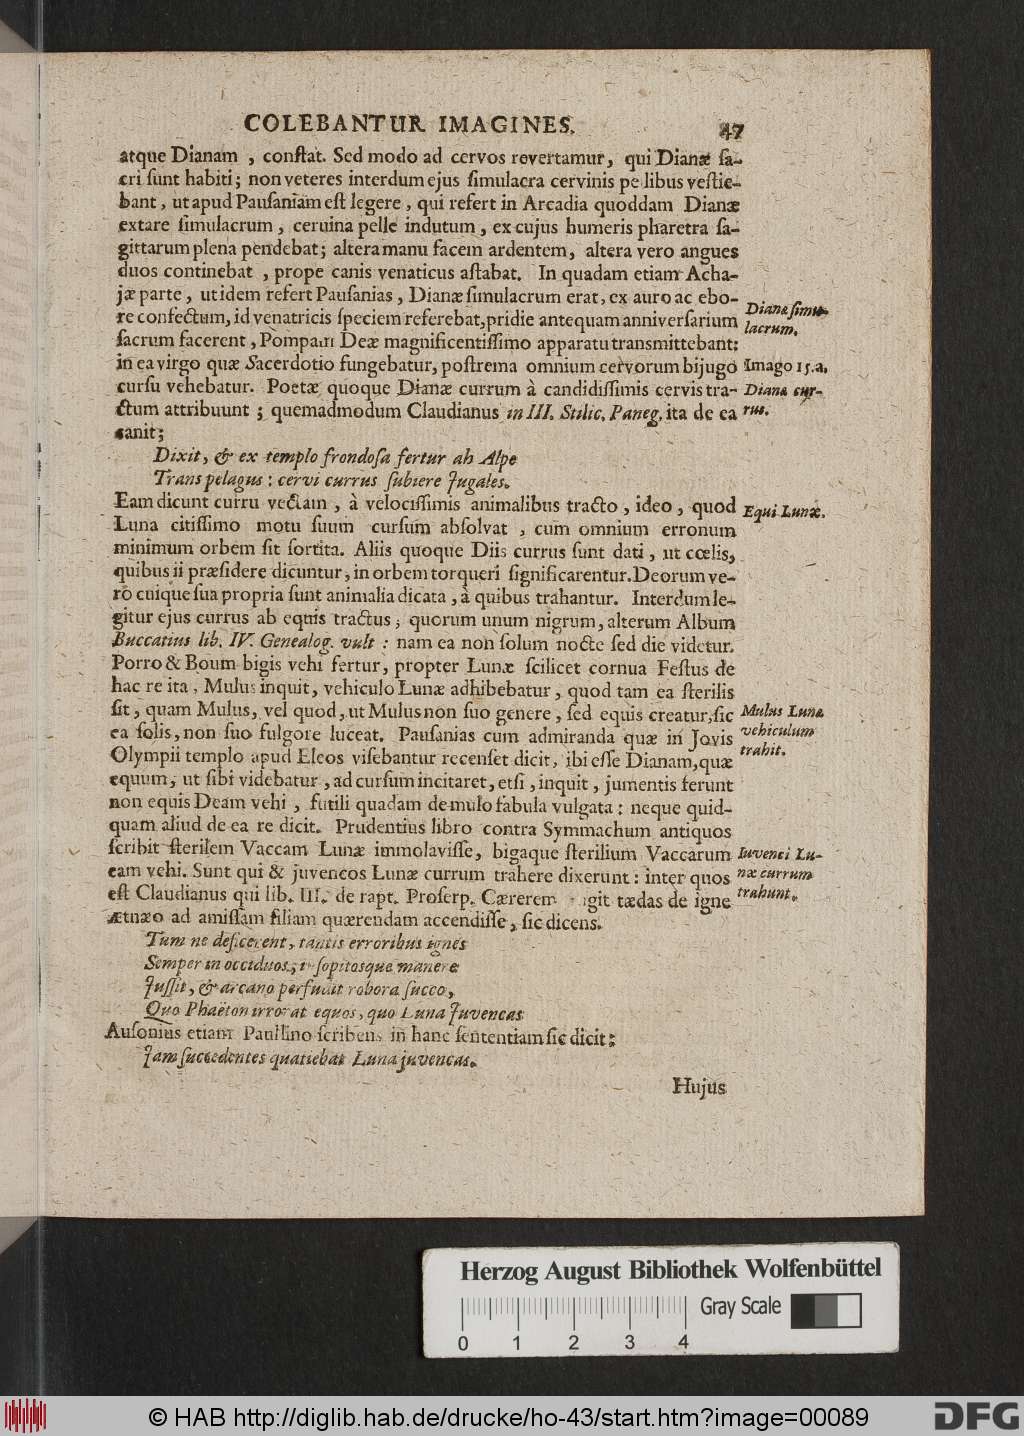 COLEBANTUR IMAGINES. 47
atque Dianam , conſtat. Sed modo ad cervos revertamur, qui Dianæ ſa-
cri ſunt habiti; non veteres interdum ejus ſimulacra cervinis pellibus veſtie-
bant, ut apud Pauſaniam eſt legere, qui refert in Arcadia quoddam Dianæ
extare ſimulacrum, ceruina pelle indutum, ex cujus humeris pharetra ſa-
gittarum plena pendebat; altera manu facem ardentem, altera vero angues
duos continebat , prope canis venaticus aſtabat. In quadam etiam Acha-
jæ parte, ut idem refert Pauſanias, Dianæ ſimulacrum erat, ex auro ac ebo-
Diana ſimu-
re confectum, id venatricis ſpeciem referebat, pridie antequam anniverſarium
lacrum.
ſacrum facerent, Pompam Deæ magnificentiſſimo apparatu transmittebant:
in ea virgo quæ Sacerdotio fungebatur, poſtrema omnium cervorum bijugo
Imago 15.a.
curſu vehebatur. Poetæ quoque Dianæ currum à candidiſſimis cervis tra-
Dianæ cur-
ctum attribuunt ; quemadmodum Claudianus in III. Stilic. Paneg. ita de ea
rus.
canit;
Dixit, & ex templo frondoſa fertur ab Alpe
Trans pelagus: cervi currus ſubiere Jugales.
Eam dicunt curru vectam , à velociſſimis animalibus tracto, ideo, quod
Equi Lunæ.
Luna citiſſimo motu ſuum curſum abſolvat , cum omnium erronum
minimum orbem ſit ſortita. Aliis quoque Diis currus ſunt dati , ut cœlis,
quibus ii præſidere dicuntur, in orbem torqueri ſignificarentur. Deorum ve-
rò cuique ſua propria ſunt animalia dicata, à quibus trahantur. Interdum le-
gitur ejus currus ab equis tractus; quorum unum nigrum, alterum Album
Buccatius lib. IV. Genealog. vult : nam ea non ſolum nocte ſed die videtur.
Porro & Boum bigis vehi fertur, propter Lunæ ſcilicet cornua Feſtus de
hac re ita, Mulus inquit, vehiculo Lunæ adhibebatur, quod tam ea ſterilis
ſit, quam Mulus, vel quod, ut Mulus non ſuo genere, ſed equis creatur, ſic
Mulus Lunæ
ea ſolis, non ſuo fulgore luceat. Pauſanias cum admiranda quæ in Jovis
vehiculum
Olympii templo apud Eleos viſebantur recenſet dicit, ibi eſſe Dianam, quæ
trahit.
equum, ut ſibi videbatur, ad curſum incitaret, etſi, inquit, jumentis ferunt
non equis Deam vehi , futili quadam de mulo fabula vulgata: neque quid-
quam aliud de ea re dicit. Prudentius libro contra Symmachum antiquos
ſcribit ſterilem Vaccam Lunæ immolaviſſe, bigaque ſterilium Vaccarum
Iuvenci Lu-
eam vehi. Sunt qui & juvencos Lunæ currum trahere dixerunt: inter quos
næ currum
eſt Claudianus qui lib. III. de rapt. Proſerp. Cærerem fingit tædas de igne
trahunt.
Ætnæo ad amiſſam filiam quærendam accendiſſe, ſic dicens.
Tum ne deficerent, tantis erroribus ignes
Semper in occiduos, inſopitosque manere
Juſſit, & arcano perfudit robora ſucco,
Quo Phaëton irrorat equos, quo Luna Juvencas
Auſonius etiam Paullino ſcribens in hanc ſententiam ſic dicit:
Jam ſuccedentes quatiebat Luna juvencas.
Hujus
Herzog August Bibliothek Wolfenbüttel
Gray Scale
0 1 2 3 4
© HAB http://diglib.hab.de/drucke/ho-43/start.htm?image=00089
DFG